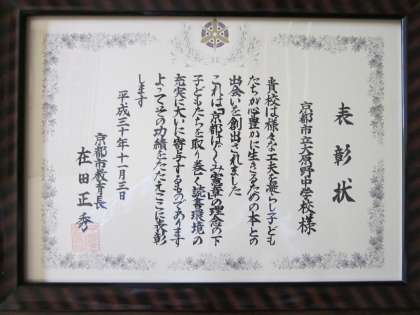 表彰状
京都市立大原野中学校様
貴校は様々な工夫を凝らし子ども
たちが心豊かに生きるための本との
出会いを創出されました
これは「京都はぐくみ憲章」の理念の下
子どもたちを取り巻く読書環境の
充実に大いに寄与するものであります
よってその功績をたたえここに表彰
します
平成三十年十一月三日
京都市教育長
在田正秀